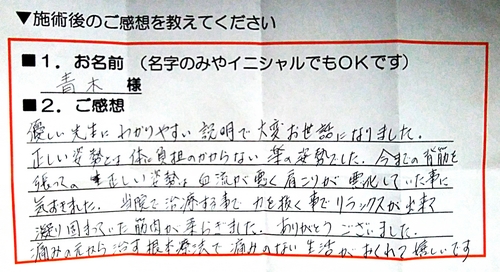 ▼施術後のご感想を教えてください
■1．お名前 （名字のみやイニシャルでもOKです）
青木 様
■2．ご感想
優しい先生にわかりやすい説明で大変お世話になりました。
正しい姿勢とは体に負担のかからない楽の姿勢でした。今までの背筋を
張っての正しい姿勢は血流が悪く肩こりが悪化していた事に
気ずきました。当院で治療する事で力を抜く事でリラックスが出来て
凝り固まっていた筋肉が柔らぎました。ありがとうございました。
痛みの元から治す根本療法で痛みのない生活がおくれて嬉しいです